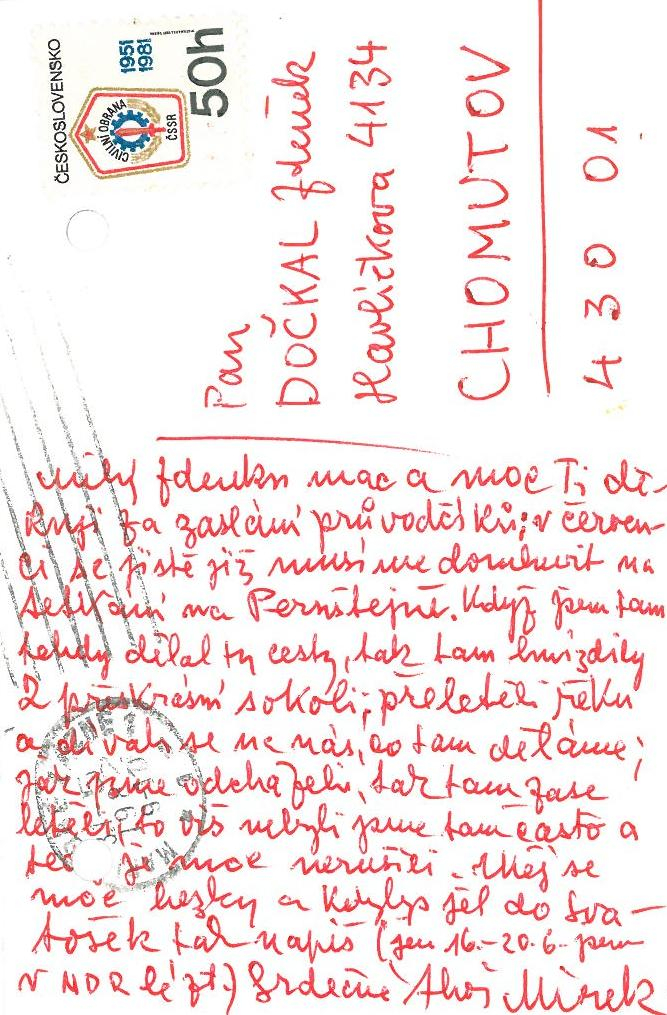 ČESKOSLOVENSKO
1951
1981
50h
CIVILNÍ OBRANA
ČSSR
Pan
DOČKAL Zdeněk
Havlíčkova 4134
CHOMUTOV
430 01
Milý Zdenku moc a moc Ti dě-
kuji za zaslání průvodčíků; v červen-
ci se jistě již musíme domluvit na
setkání na Pernštejně. Když jsem tam
tehdy dělal ty cesty, tak tam hnízdily
2 překrásní sokoli; přeletěli řeku
a dívali se na nás, co tam děláme;
jak jsme odcházeli, tak tam zase
letěli, to víš nebyli jsme tam často a
též je moc nerušili. Měj se
moc hezky a kdybys jel do Sva-
tošek tak napiš (jen 16.-20.6. jsem
v NDR) Srdečné Ahoj Mirek